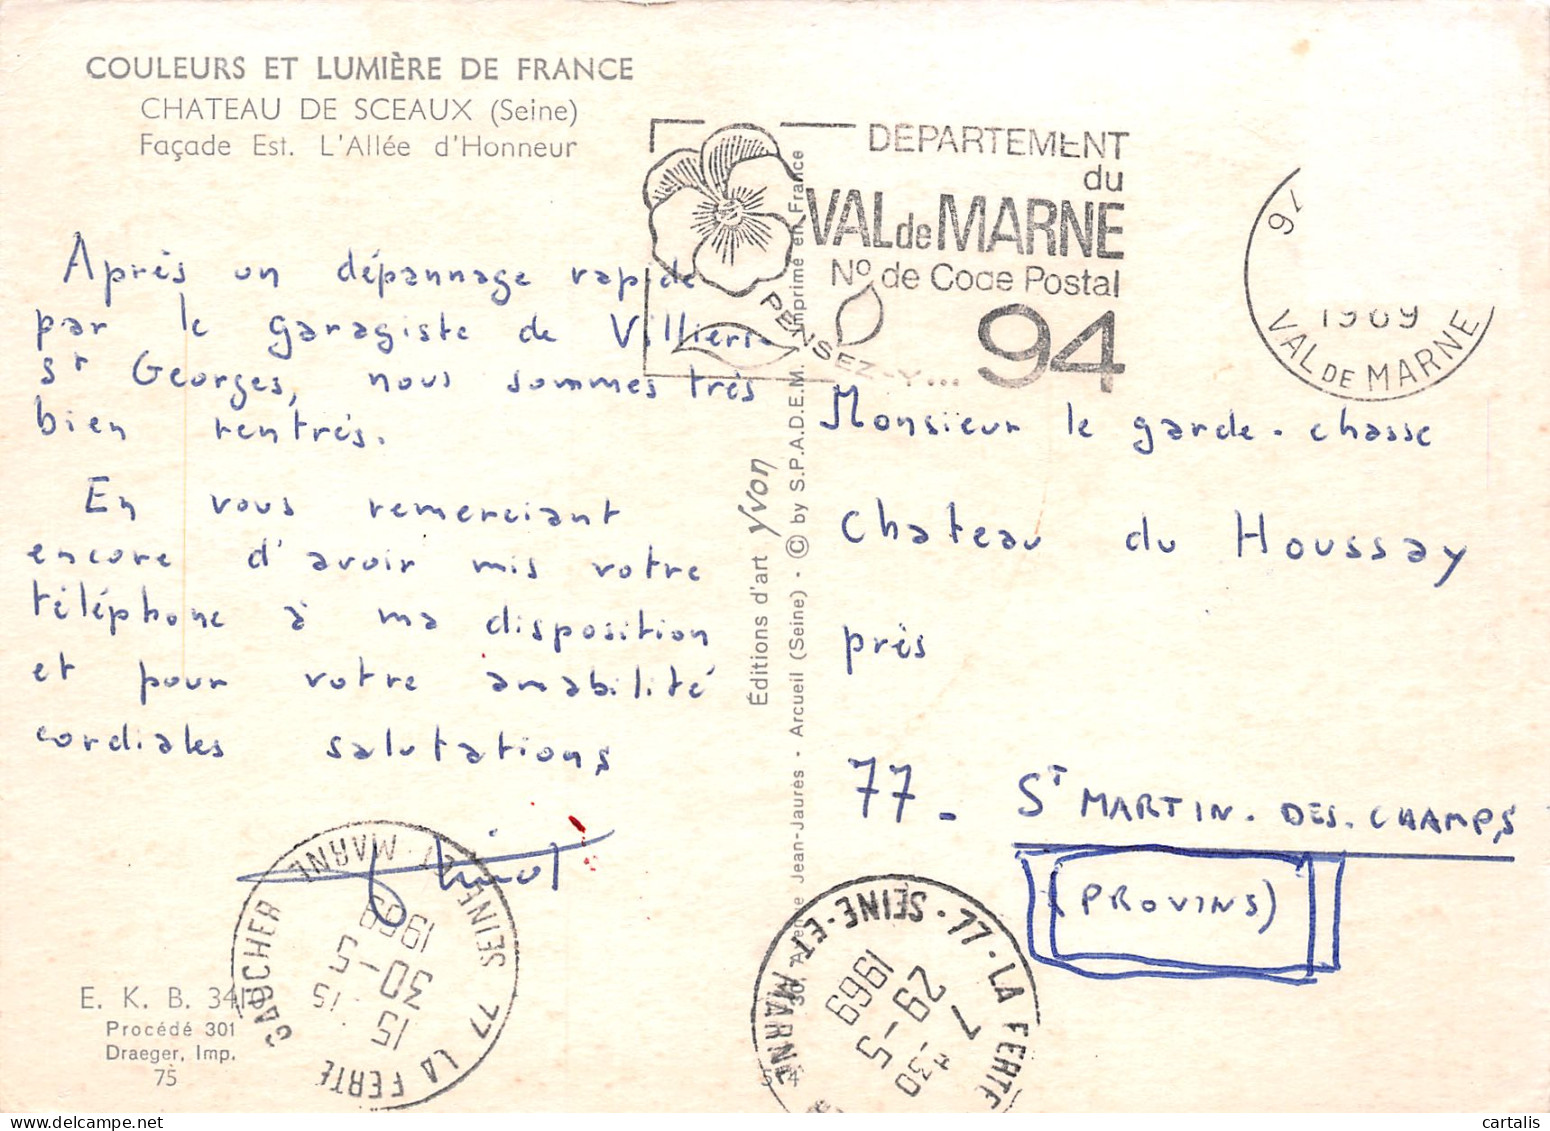 COULEURS ET LUMIÈRE DE FRANCE
CHATEAU DE SCEAUX (Seine)
Façade Est. L'Allée d'Honneur
Après un dépannage rapide
par le garagiste de Villiers
St Georges, nous sommes très
bien rentrés.
En vous remerciant
encore d'avoir mis votre
téléphone à ma disposition
et pour votre amabilité
cordiales salutations
E. K. B. 341
Procédé 301
Draeger, Imp.
75
77 LA FERTE GAUCHER
SEINE-ET-MARNE
15 15
30-5
1969
Éditions d'art Yvon
30, Avenue Jean-Jaurès - Arcueil (Seine) - © by S.P.A.D.E.M. Imprimé en France
DEPARTEMENT
du
VAL de MARNE
No de Code Postal
94
PENSEZ-Y...
94
1969
VAL DE MARNE
Monsieur le garde-chasse
Chateau du Houssay
près
77 - St MARTIN.DES.CHAMPS
(PROVINS)
77-LA FERTE
SEINE-ET-MARNE
7 30
29-5
1969
cartalis